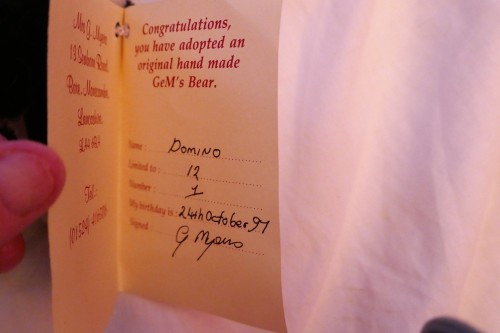 Mrs G. Myers
Bare, Morecambe,
Lancashire.
Tel:
Congratulations,
you have adopted an
original hand made
GeM's Bear.
Name : DOMINO
Limited to : 12
Number : 1
My birthday is : 24th October 97
Signed : G Myers